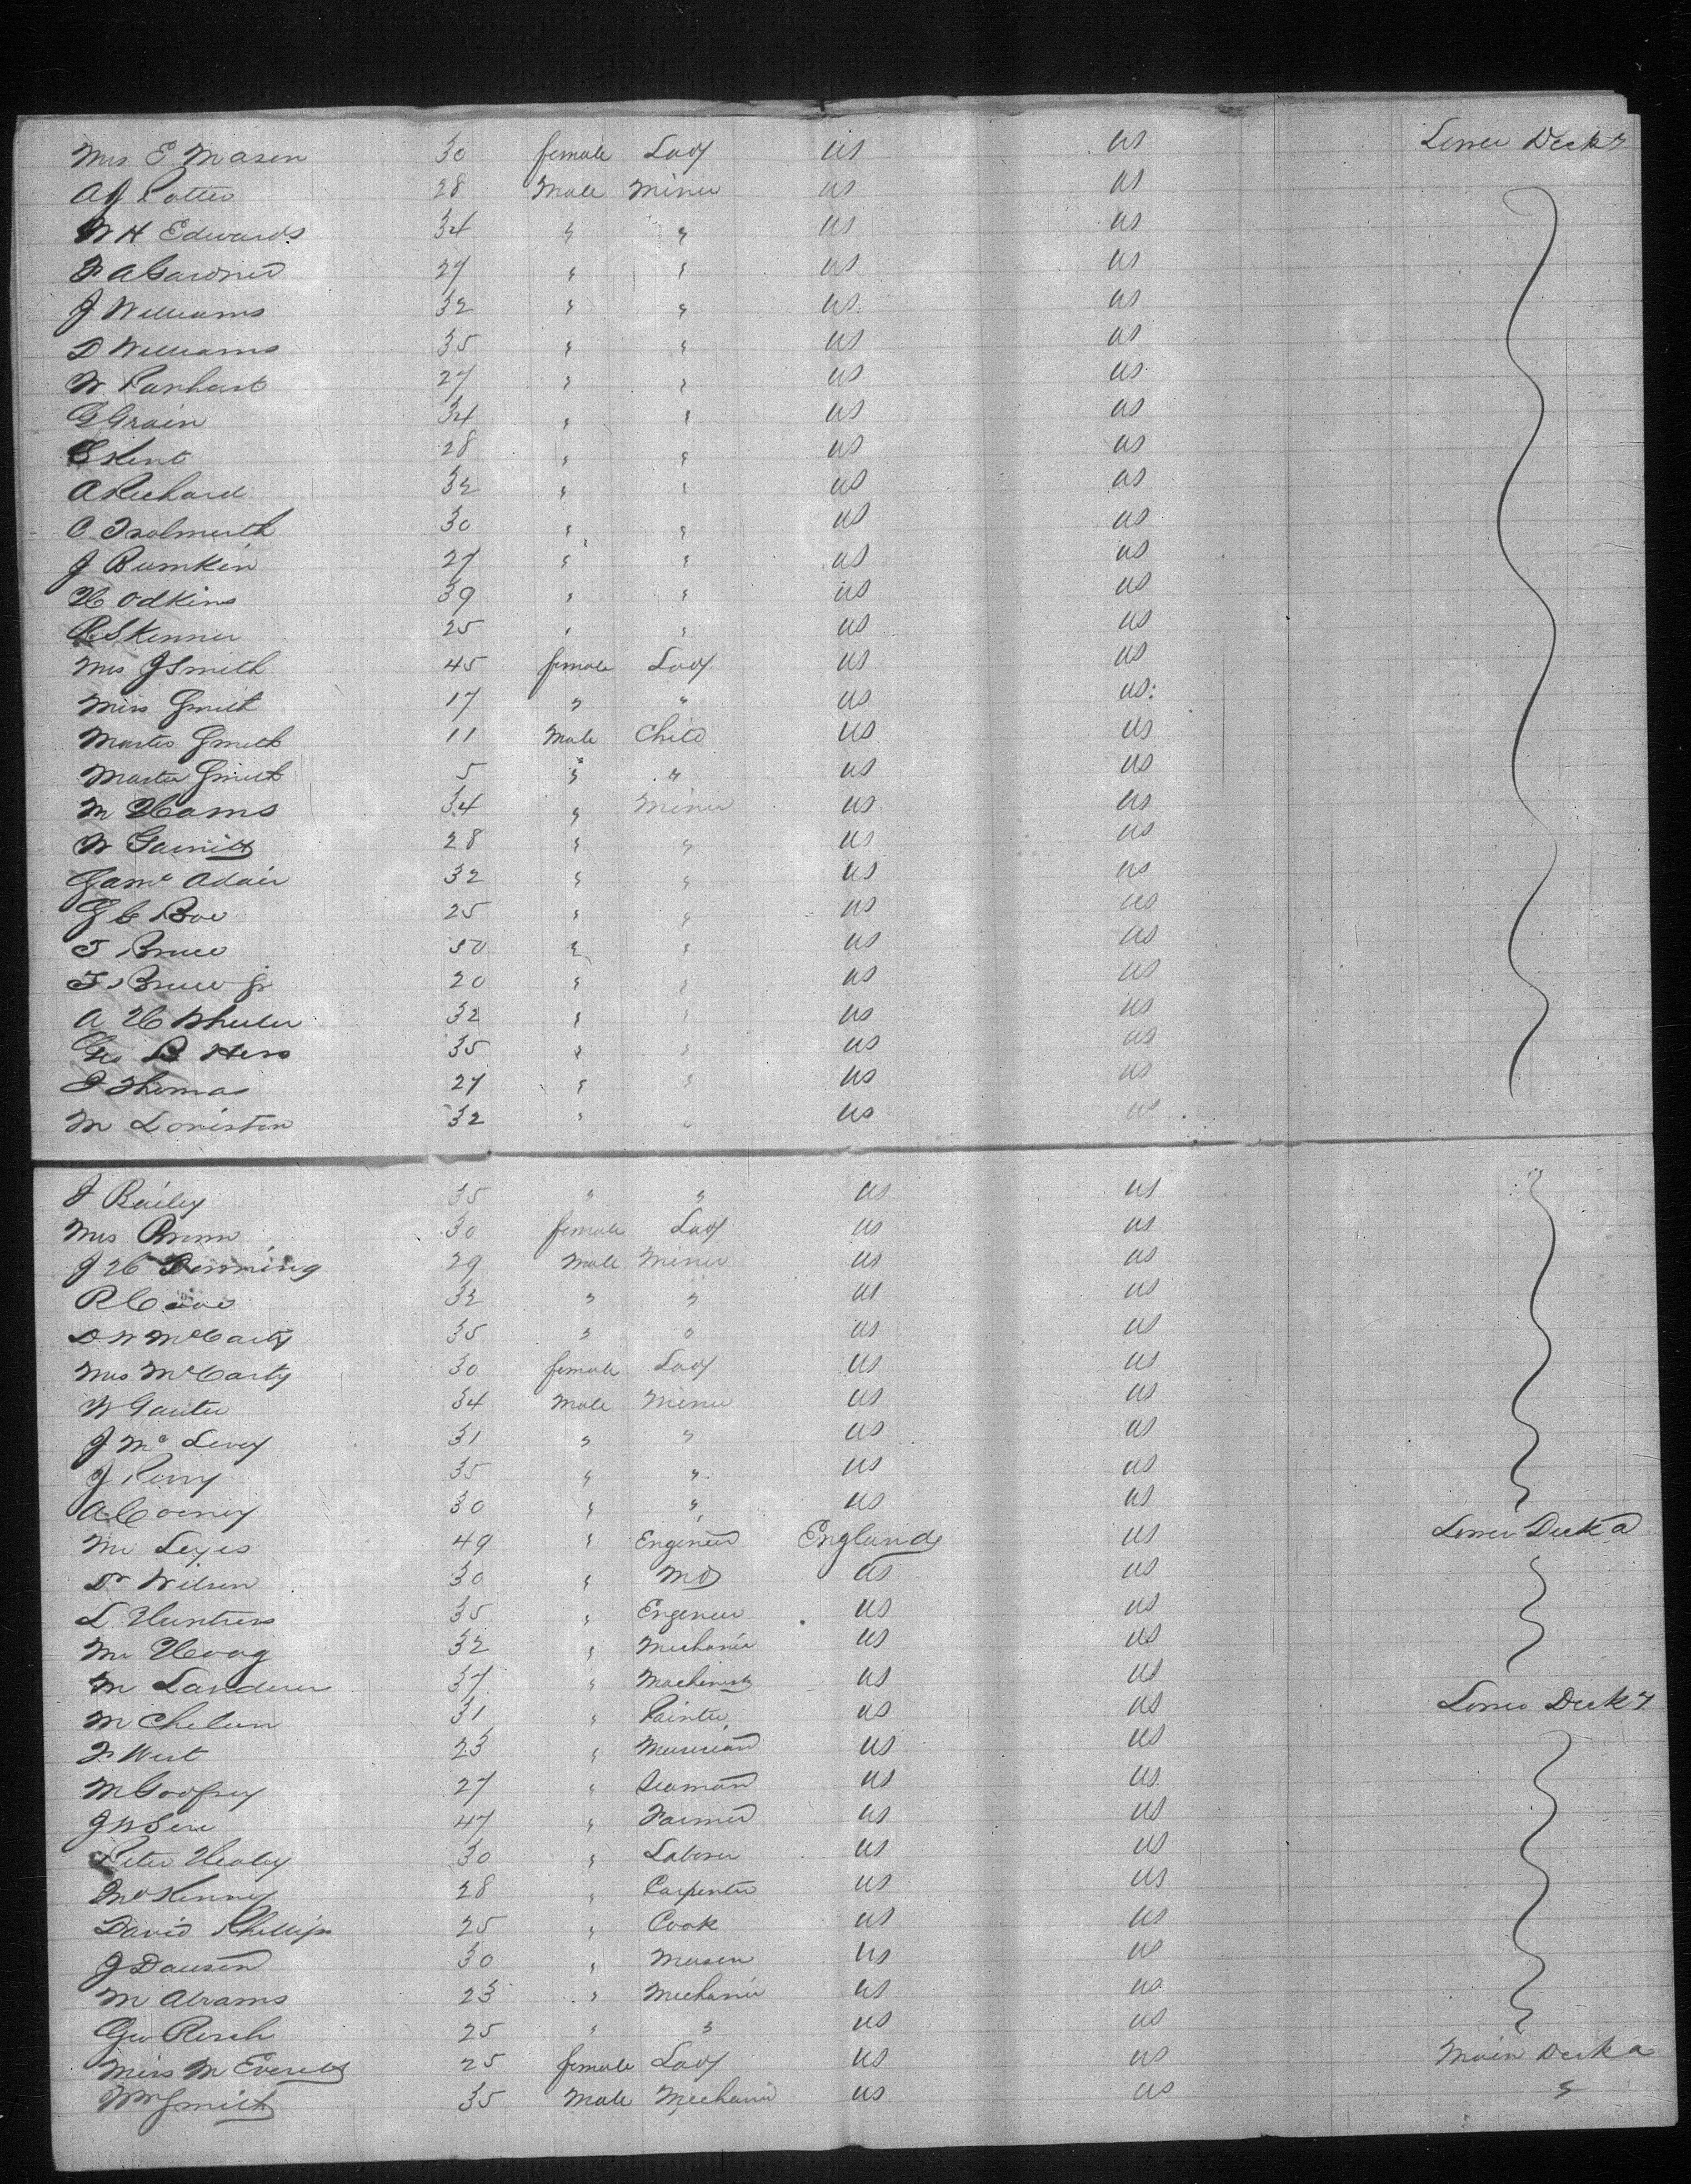 Mrs E Mason 30 female Lady US US Lower Deck
A J Potter 28 Male Miner US US
W H Edwards 34 " " US US
F A Gardner 27 " " US US
J Williams 32 " " US US
D Williams 35 " " US US
W 27 " " US US
G Grain 34 " " US US
E Kent 28 " " US US
A Richard 32 " " US US
C 30 " " US US
J Bumkin 27 " " US US
H Odkins 39 " " US US
R Skinner 25 " " US US
Mrs J Smith 45 female Lady US US
Miss Smith 17 " " US US
Master Smith 11 Male Child US US
Master Smith 5 " " US US
M Hams 34 " Miner US US
W 28 " " US US
Adair 32 " " US US
25 " " US US
T Bruce 50 " " US US
T Bruce Jr 20 " " US US
A H Wheeler 32 " " US US
Geo B Hess 35 " " US US
J Thomas 27 " " US US
M Loriston 32 " " US US
J Bailey 35 " " US US
Mrs 30 female Lady US US
J H 29 Male Miner US US
R 32 " " US US
D W McCarty 35 " " US US
Mrs McCarty 30 female Lady US US
W 34 Male Miner US US
J Mc Levy 31 " " US US
J Perry 35 " " US US
A Corney 30 " " US US
Mr 49 " Engineer England US Lower Deck a
Dr Wilson 30 " MD US US
L Huntress 35 " Engeneer US US
Mr Hoag 32 " Mechanic US US
M 37 " Machinist US US
M 31 " Painter US US Lower Deck
F West 23 " Musician US US
M Godfrey 27 " Seaman US US
J W 47 " Farmer US US
Peter Healey 30 " Laborer US US
McKenney 28 " Carpenter US US
David Phillips 25 " Cook US US
J Dawson 30 " Mason US US
M Abrams 23 " Mechanic US US
Geo 25 " " US US
Miss M Everett 25 female Lady US US Main Deck a
Wm Smith 35 Male Mechanic US US "